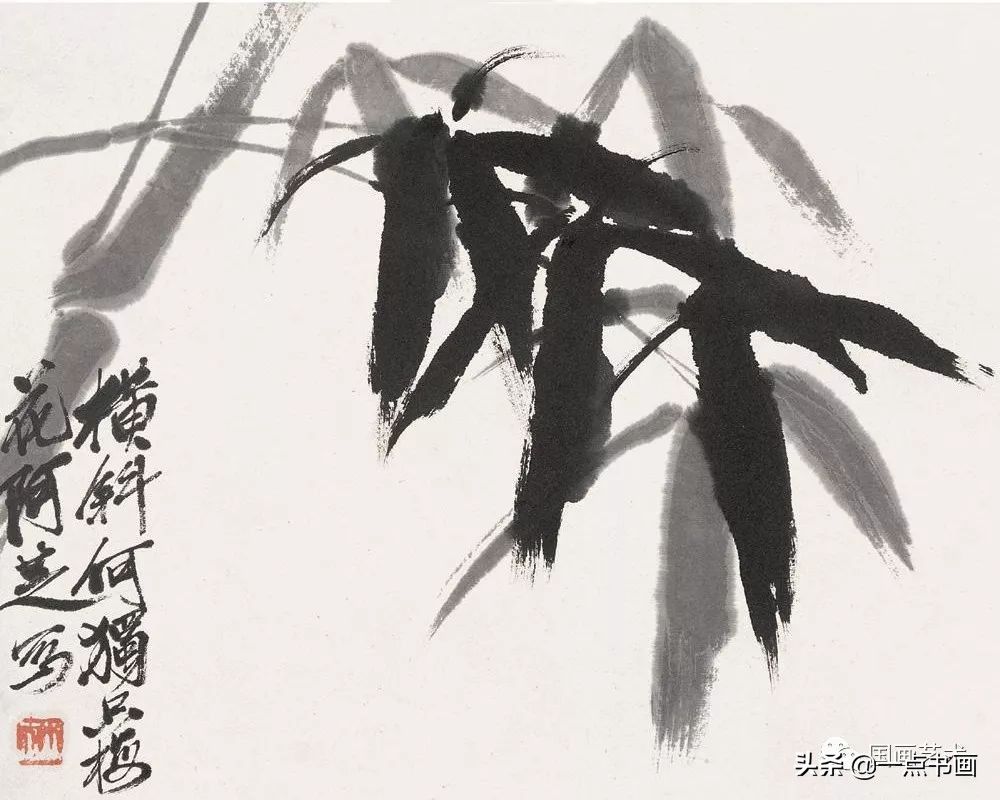 橫斜何獨只梅
花阿芝寫
国画艺术
头条 @一点书画